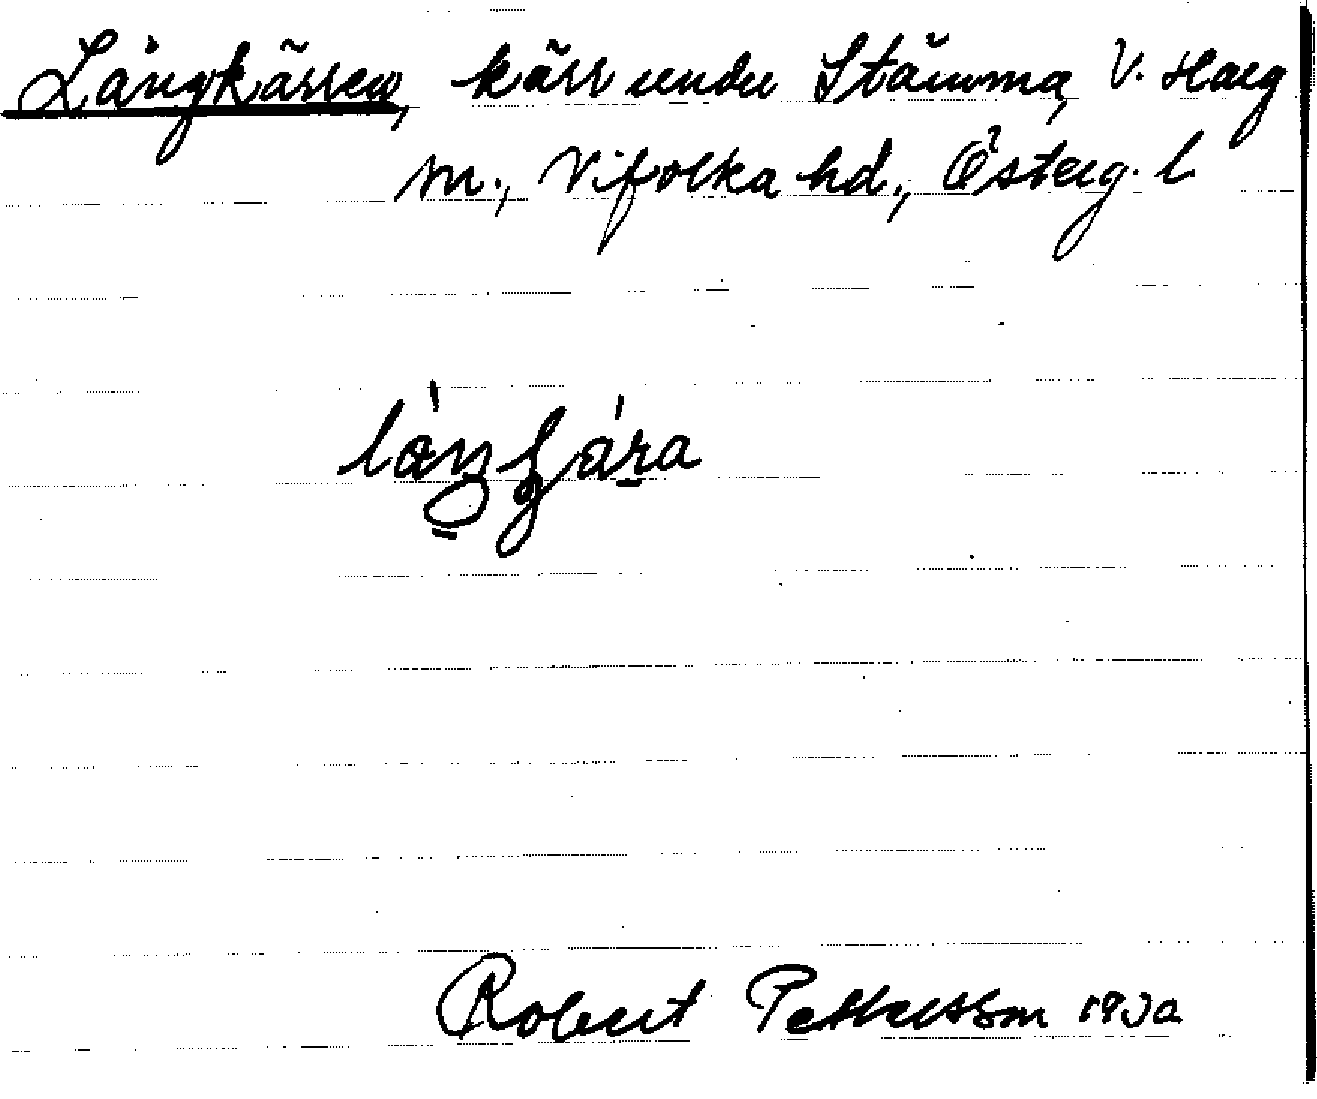 Långkärren, kärr under Stämma, V. Harg
sn., Vifolka hd., Österg. l.
Robert Pettersson 1930